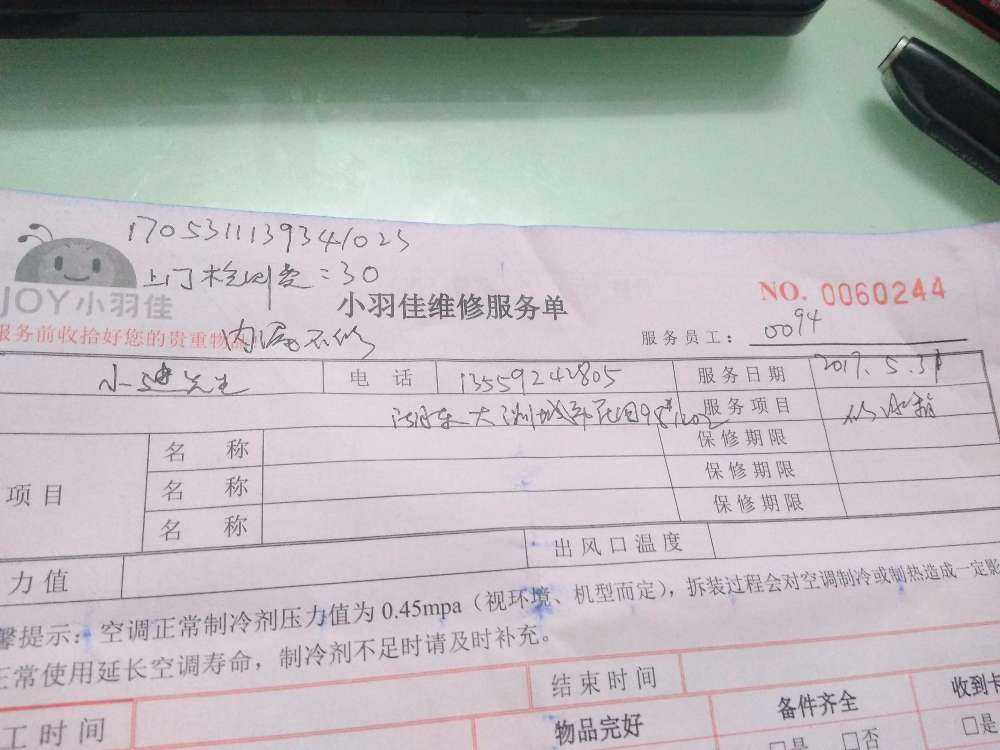 1705311139341023
上门检测费=30
JOY小羽佳
小羽佳维修服务单
NO. 0060244
服务前收拾好您的贵重物
内漏不修
服务员工： 0094
先生 电 话 13559242805 服务日期 2017.5.31
服务项目 修冰箱
项目 名 称 保修期限
名 称 保修期限
名 称 保修期限
力值 出风口温度
馨提示：空调正常制冷剂压力值为 0.45mpa（视环境、机型而定），拆装过程会对空调制冷或制热造成一定影
正常使用延长空调寿命，制冷剂不足时请及时补充。
工时间 结束时间
物品完好 备件齐全 收到卡
□是 □否 □是